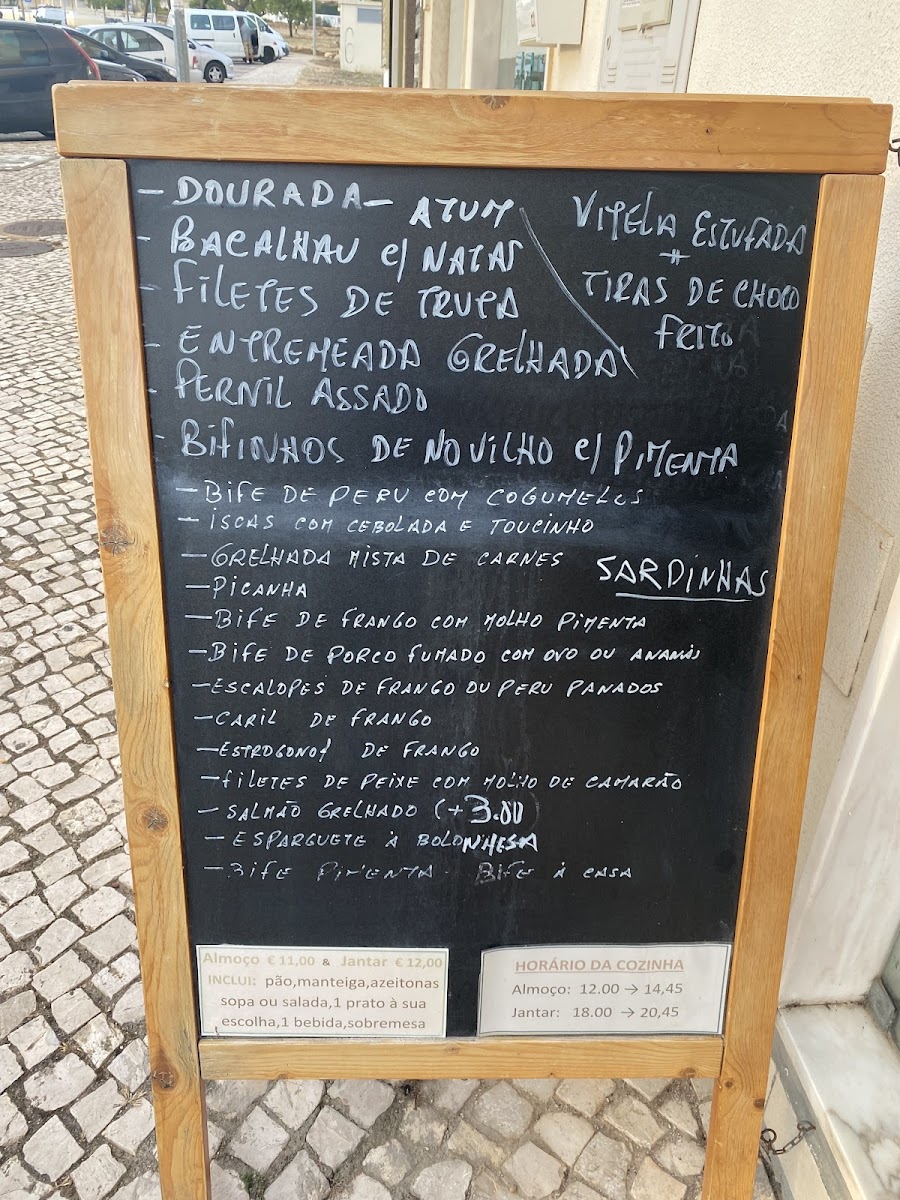 - DOURADA - ATUM
- BACALHAU c/ NATAS
- FILETES DE TRUTA
- ENTREMEADA GRELHADA
- PERNIL ASSADO
- BIFINHOS DE NOVILHO c/ PIMENTA
VITELA ESTUFADA
TIRAS DE CHOCO
FRITO
- BIFE DE PERU COM COGUMELOS
- ISCAS COM CEBOLADA E TOUCINHO
- GRELHADA MISTA DE CARNES
SARDINHAS
- PICANHA
- BIFE DE FRANGO COM MOLHO PIMENTA
- BIFE DE PORCO FUMADO COM OVO OU ANANÁS
- ESCALOPES DE FRANGO OU PERU PANADOS
- CARIL DE FRANGO
- ESTROGONOF DE FRANGO
- FILETES DE PEIXE COM MOLHO DE CAMARÃO
- SALMÃO GRELHADO (+3.00
- ESPARGUETE À BOLONHESA
- BIFE PIMENTA BIFE À CASA
Almoço € 11,00 & Jantar € 12,00
INCLUI: pão,manteiga,azeitonas
sopa ou salada,1 prato à sua
escolha,1 bebida,sobremesa
HORÁRIO DA COZINHA
Almoço: 12.00 → 14,45
Jantar: 18.00 → 20,45